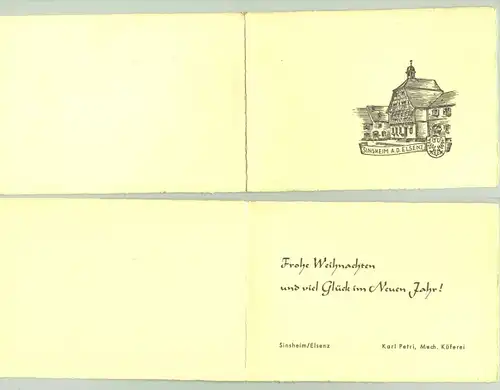 SINSHEIM A.D. ELSENZ
Frohe Weihnachten
und viel Glück im Neuen Jahr!
Sinsheim/Elsenz Karl Petri, Mech. Küferei